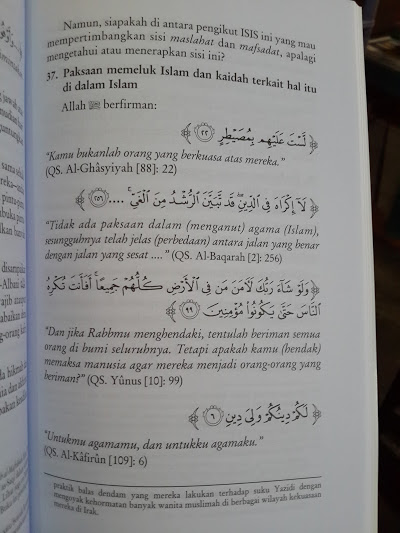 Namun, siapakah di antara pengikut ISIS ini yang mau
mempertimbangkan sisi maslahat dan mafsadat, apalagi
mengetahui atau menerapkan sisi ini?
37. Paksaan memeluk Islam dan kaidah terkait hal itu
di dalam Islam
Allah ﷻ berfirman:
﴿ لَّسْتَ عَلَيْهِم بِمُصَيْطِرٍ ٢٢ ﴾
"Kamu bukanlah orang yang berkuasa atas mereka."
(QS. Al-Ghâsyiyah [88]: 22)
﴿ لَآ إِكْرَاهَ فِى ٱلدِّينِ ۖ قَد تَّبَيَّنَ ٱلرُّشْدُ مِنَ ٱلْغَىِّ ... ٢٥٦ ﴾
"Tidak ada paksaan dalam (menganut) agama (Islam),
sesungguhnya telah jelas (perbedaan) antara jalan yang benar
dengan jalan yang sesat ...." (QS. Al-Baqarah [2]: 256)
﴿ وَلَوْ شَآءَ رَبُّكَ لَـَٔامَنَ مَن فِى ٱلْأَرْضِ كُلُّهُمْ جَمِيعًا ۚ أَفَأَنتَ تُكْرِهُ
ٱلنَّاسَ حَتَّىٰ يَكُونُوا۟ مُؤْمِنِينَ ٩٩ ﴾
"Dan jika Rabbmu menghendaki, tentulah beriman semua
orang di bumi seluruhnya. Tetapi apakah kamu (hendak)
memaksa manusia agar mereka menjadi orang-orang yang
beriman?" (QS. Yûnus [10]: 99)
﴿ لَكُمْ دِينُكُمْ وَلِىَ دِينِ ٦ ﴾
"Untukmu agamamu, dan untukku agamaku."
(QS. Al-Kâfirûn [109]: 6)
praktik balas dendam yang mereka lakukan terhadap suku Yazidi dengan
mengoyak kehormatan banyak wanita muslimah di berbagai wilayah kekuasaan
mereka di Irak.